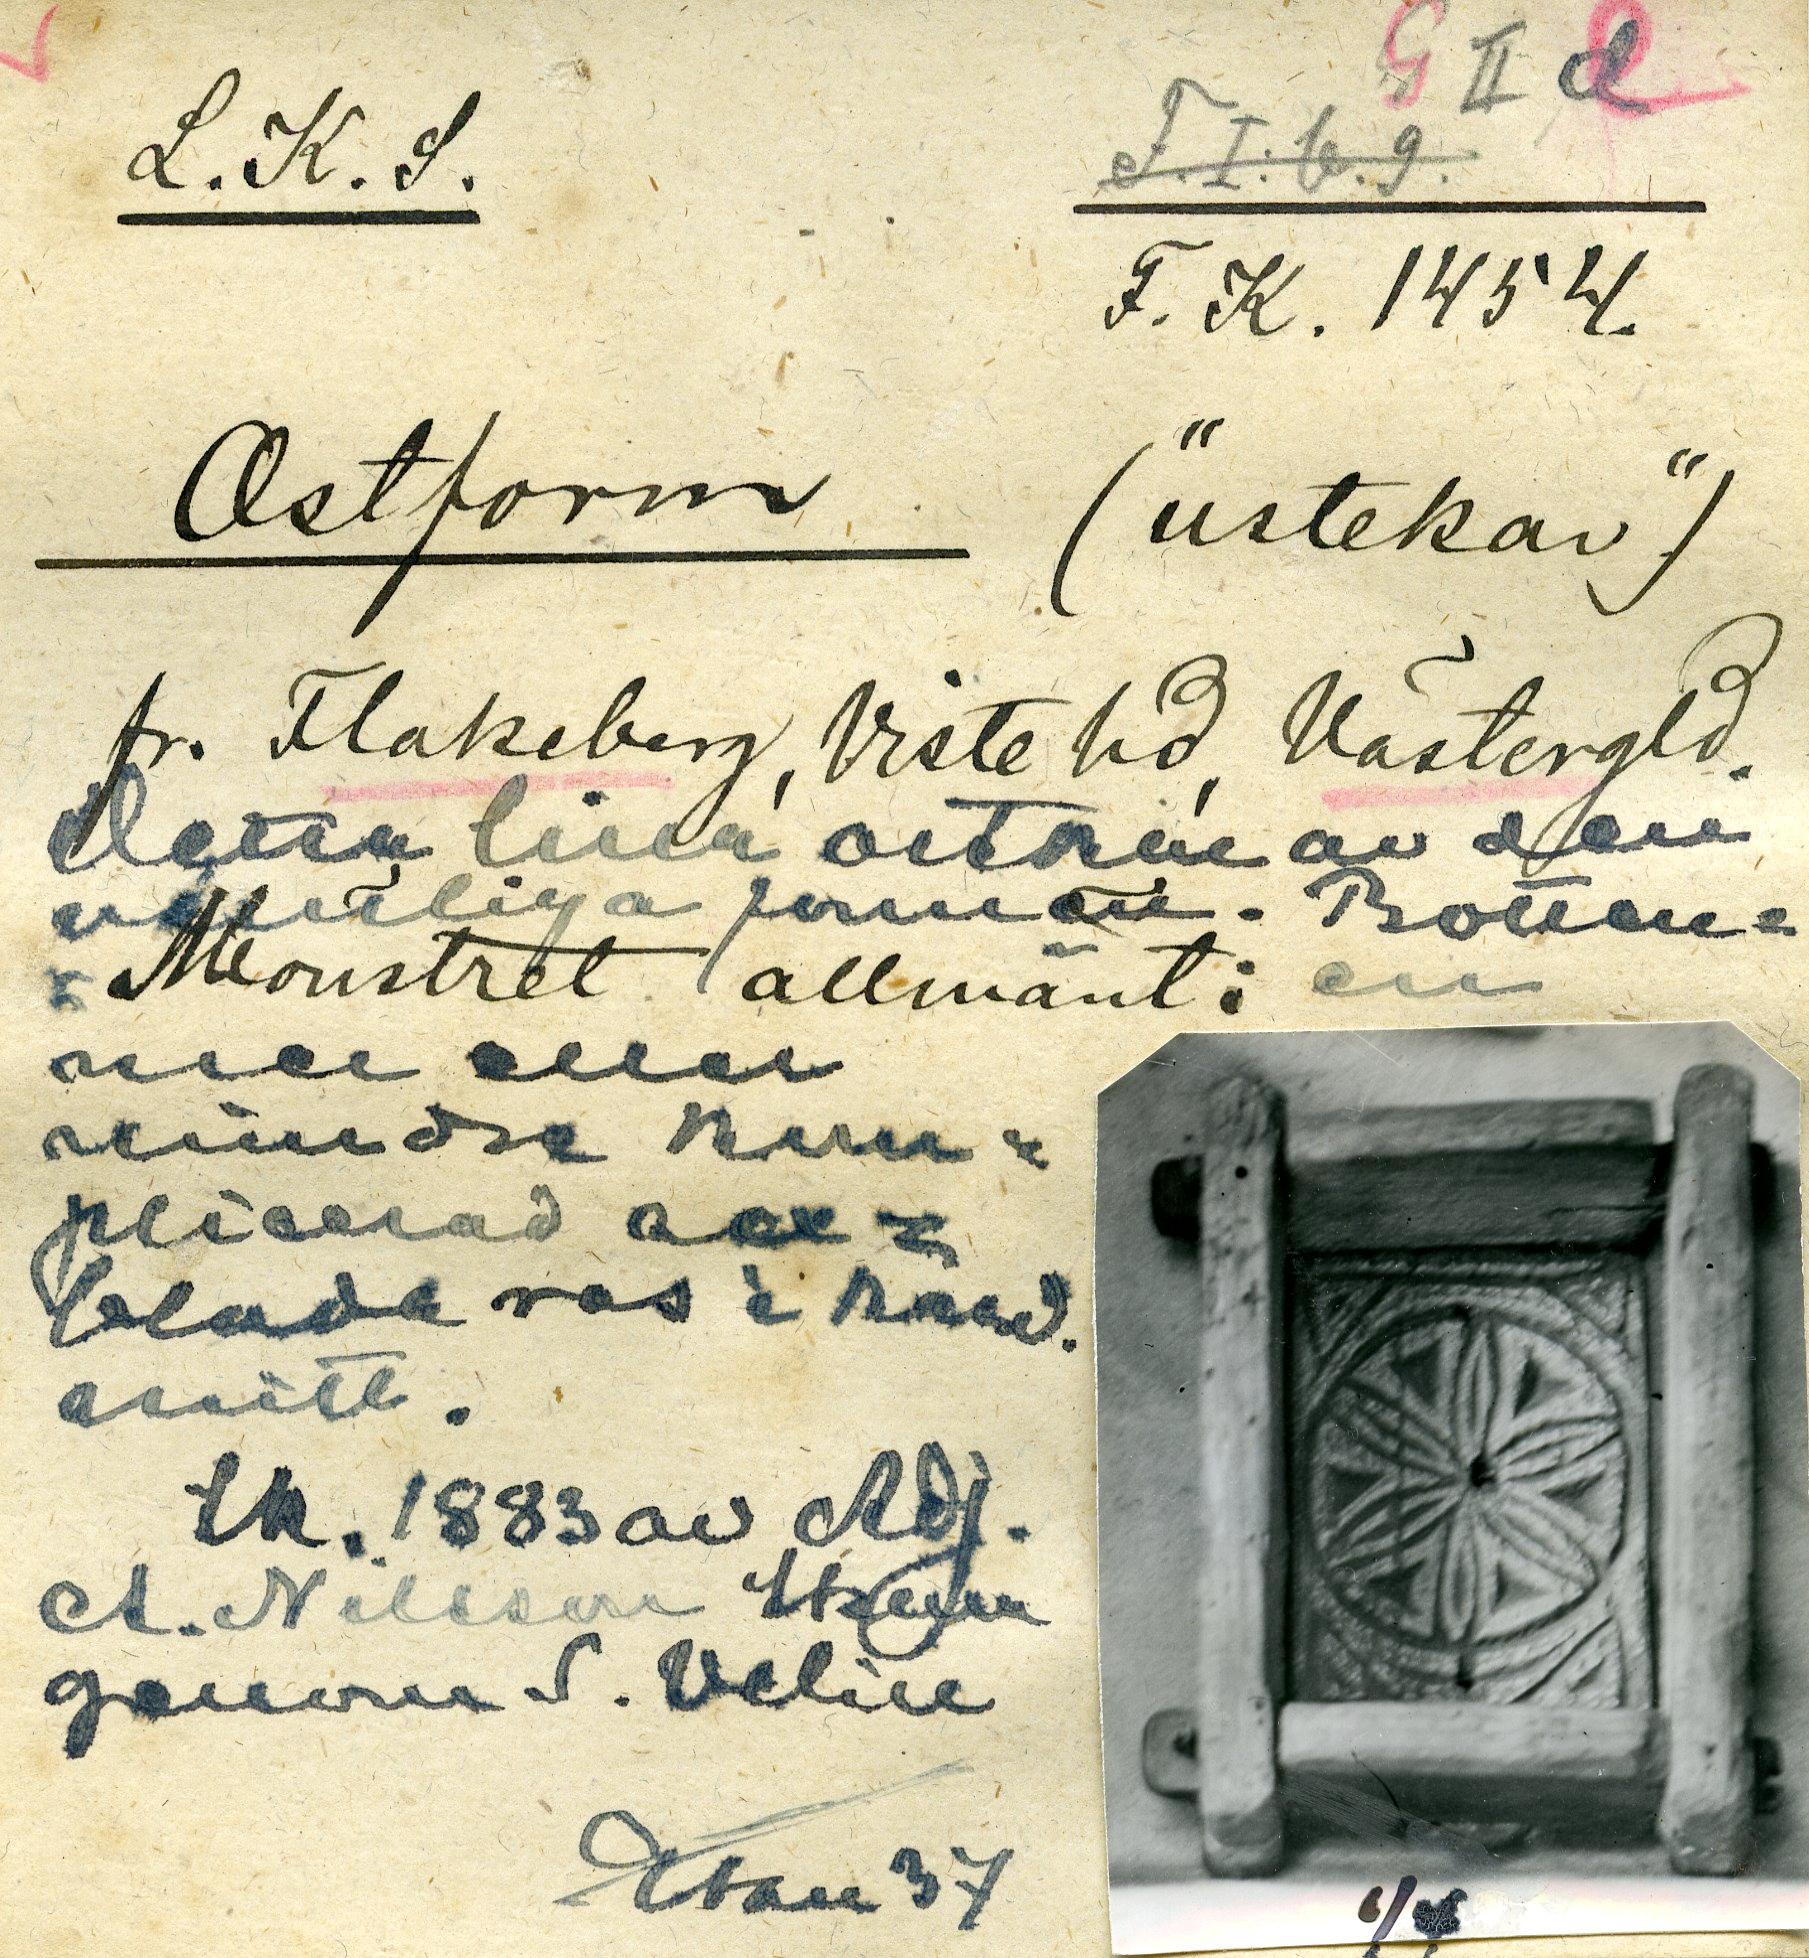 L.K.S.
G II d
F.I.b.9.
F.K. 1454.
Ostform ("ustekar")
fr. Flakeberg, Viste hd, Västergld.
Detta lilla ostkar av den
vanliga formen. Botten-
- Mönstret allmänt: en
mer eller
mindre kom-
plicerad
bladaros i karv.
snitt.
Sk. 1883 av Adj.
A. Nilsson
genom S. Velin
37
1/4